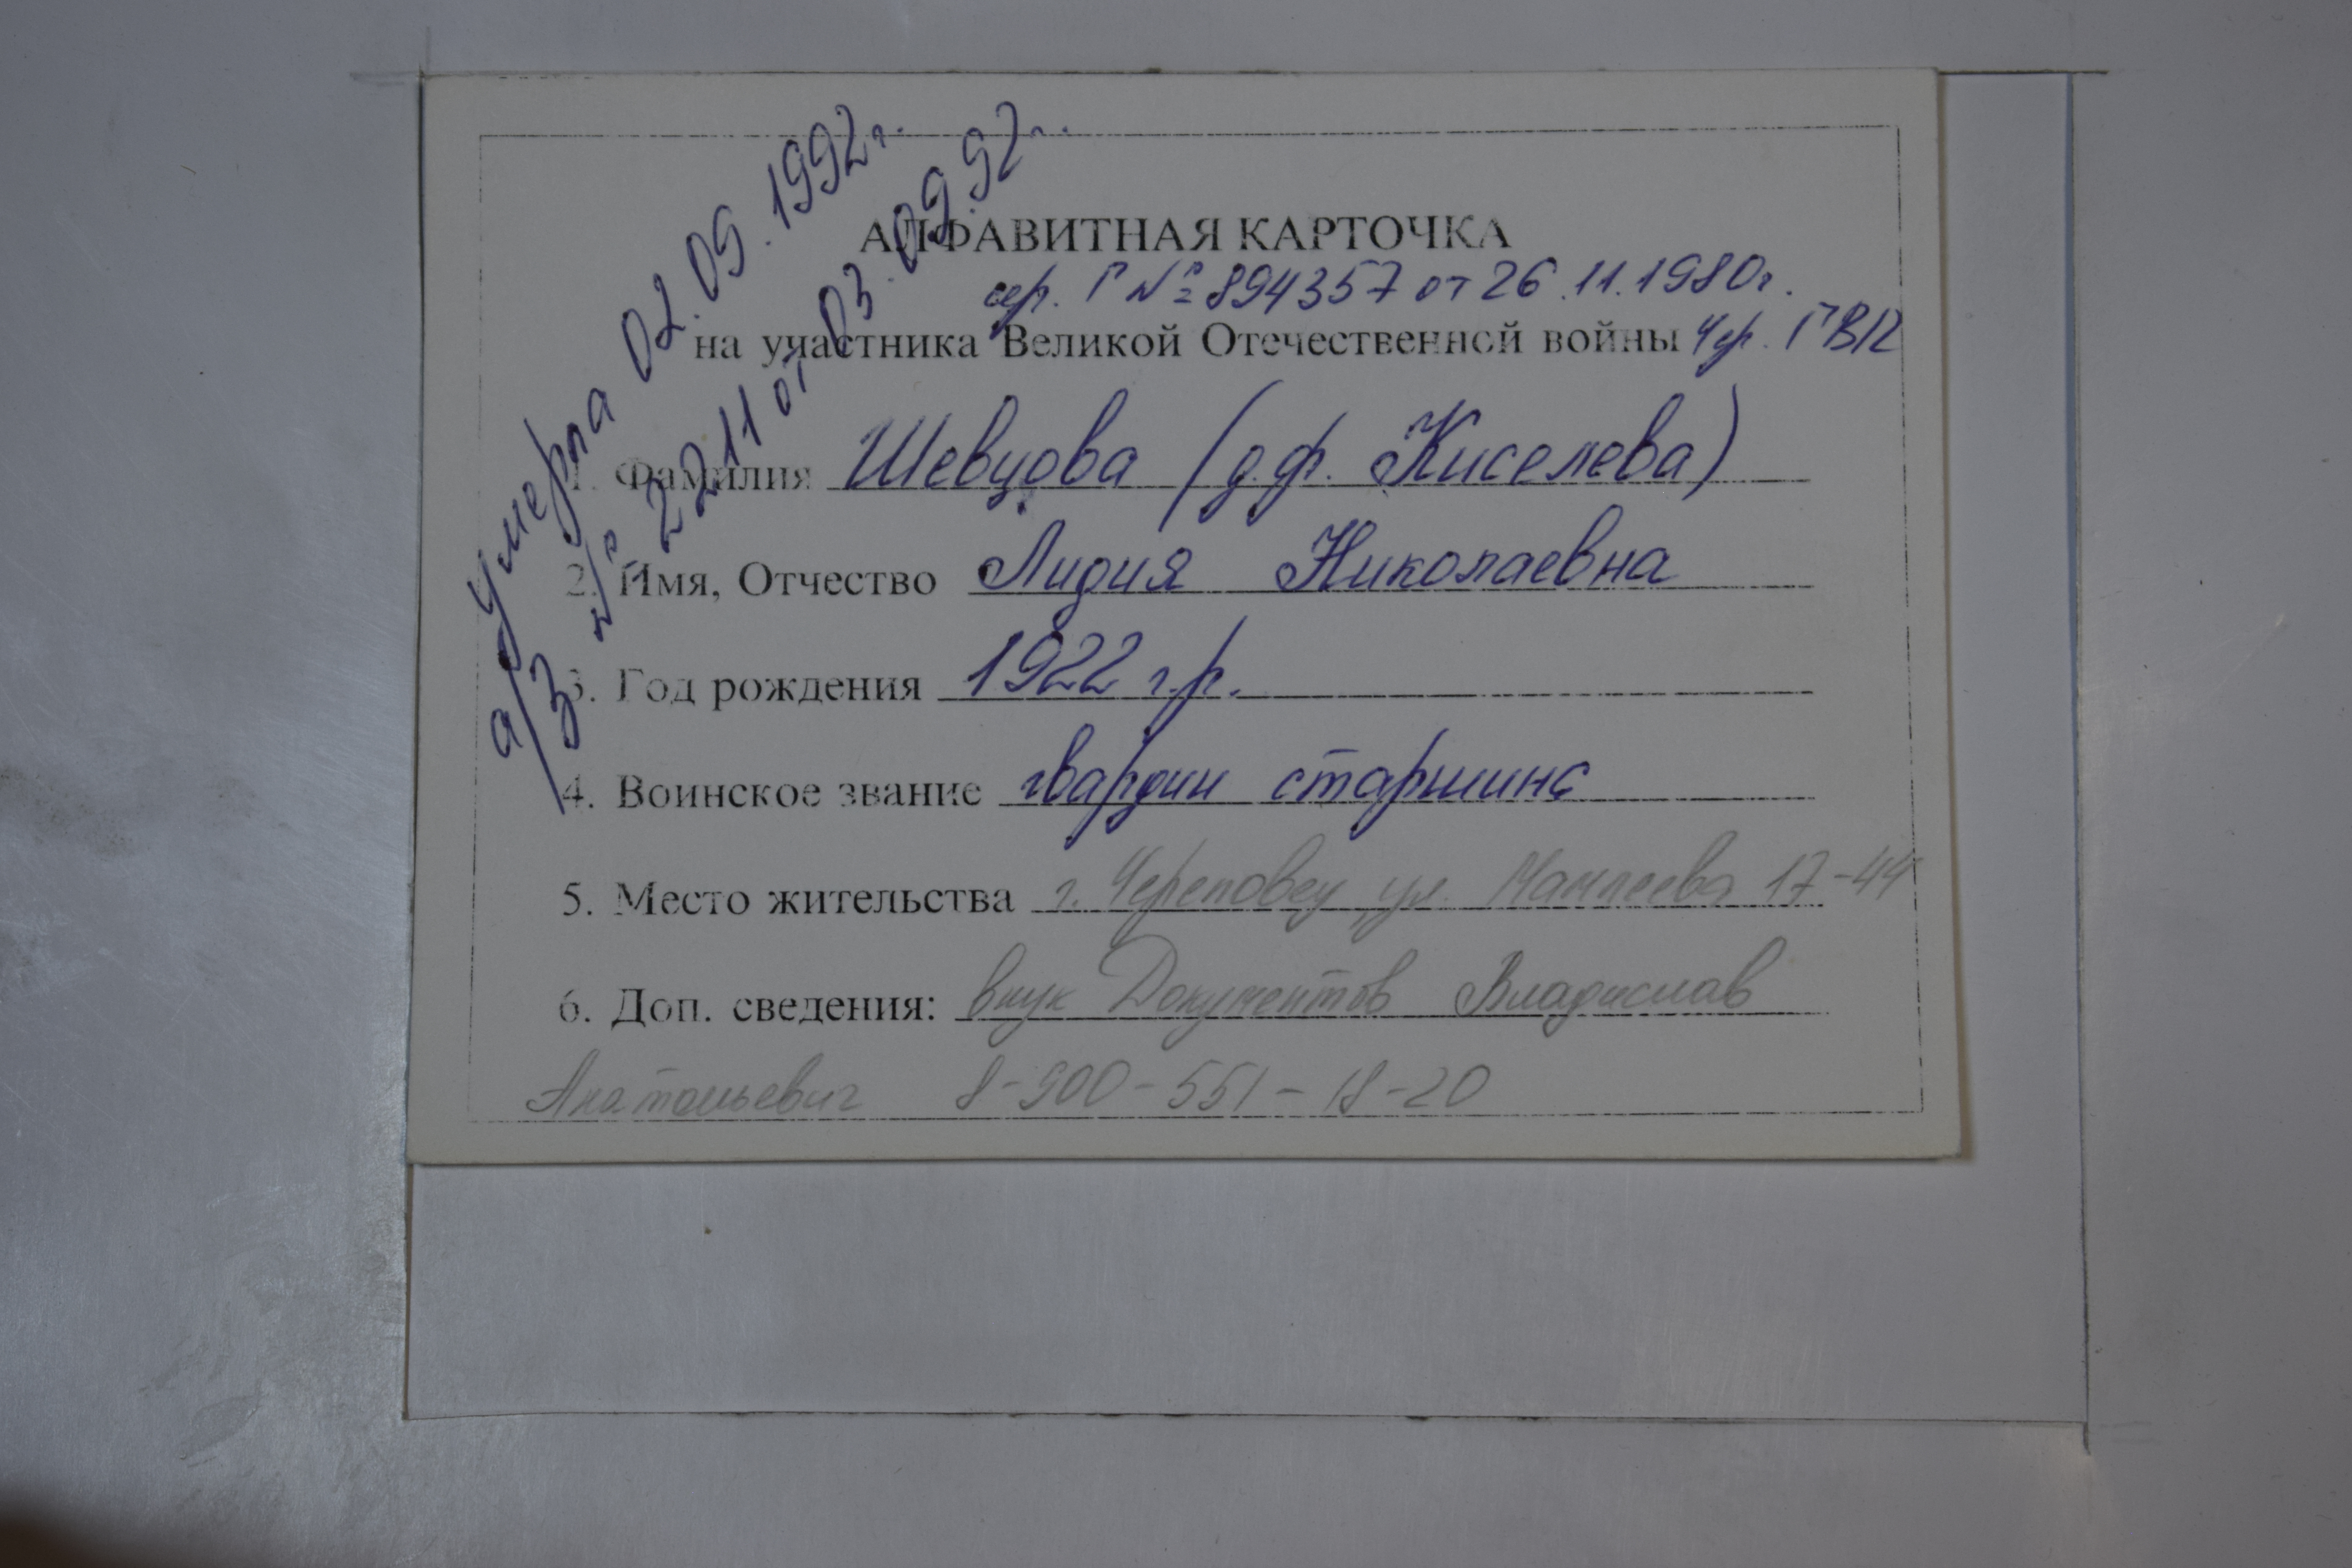 Умерла 02.09.1992г.
а/з № 2211 от 03.09.92г.
АЛФАВИТНАЯ КАРТОЧКА
сер. Г № 894357 от 26.11.1980г.
на участника Великой Отечественной войны Чер. ГВК
1. Фамилия Шевцова (д.ф. Киселева)
2. Имя, Отчество Лидия Николаевна
3. Год рождения 1922 г.р.
4. Воинское звание гвардии старшина
5. Место жительства г. Череповец, ул. 17-44
6. Доп. сведения: внук Документов Владислав
Анатольевич 8-900-551-18-20